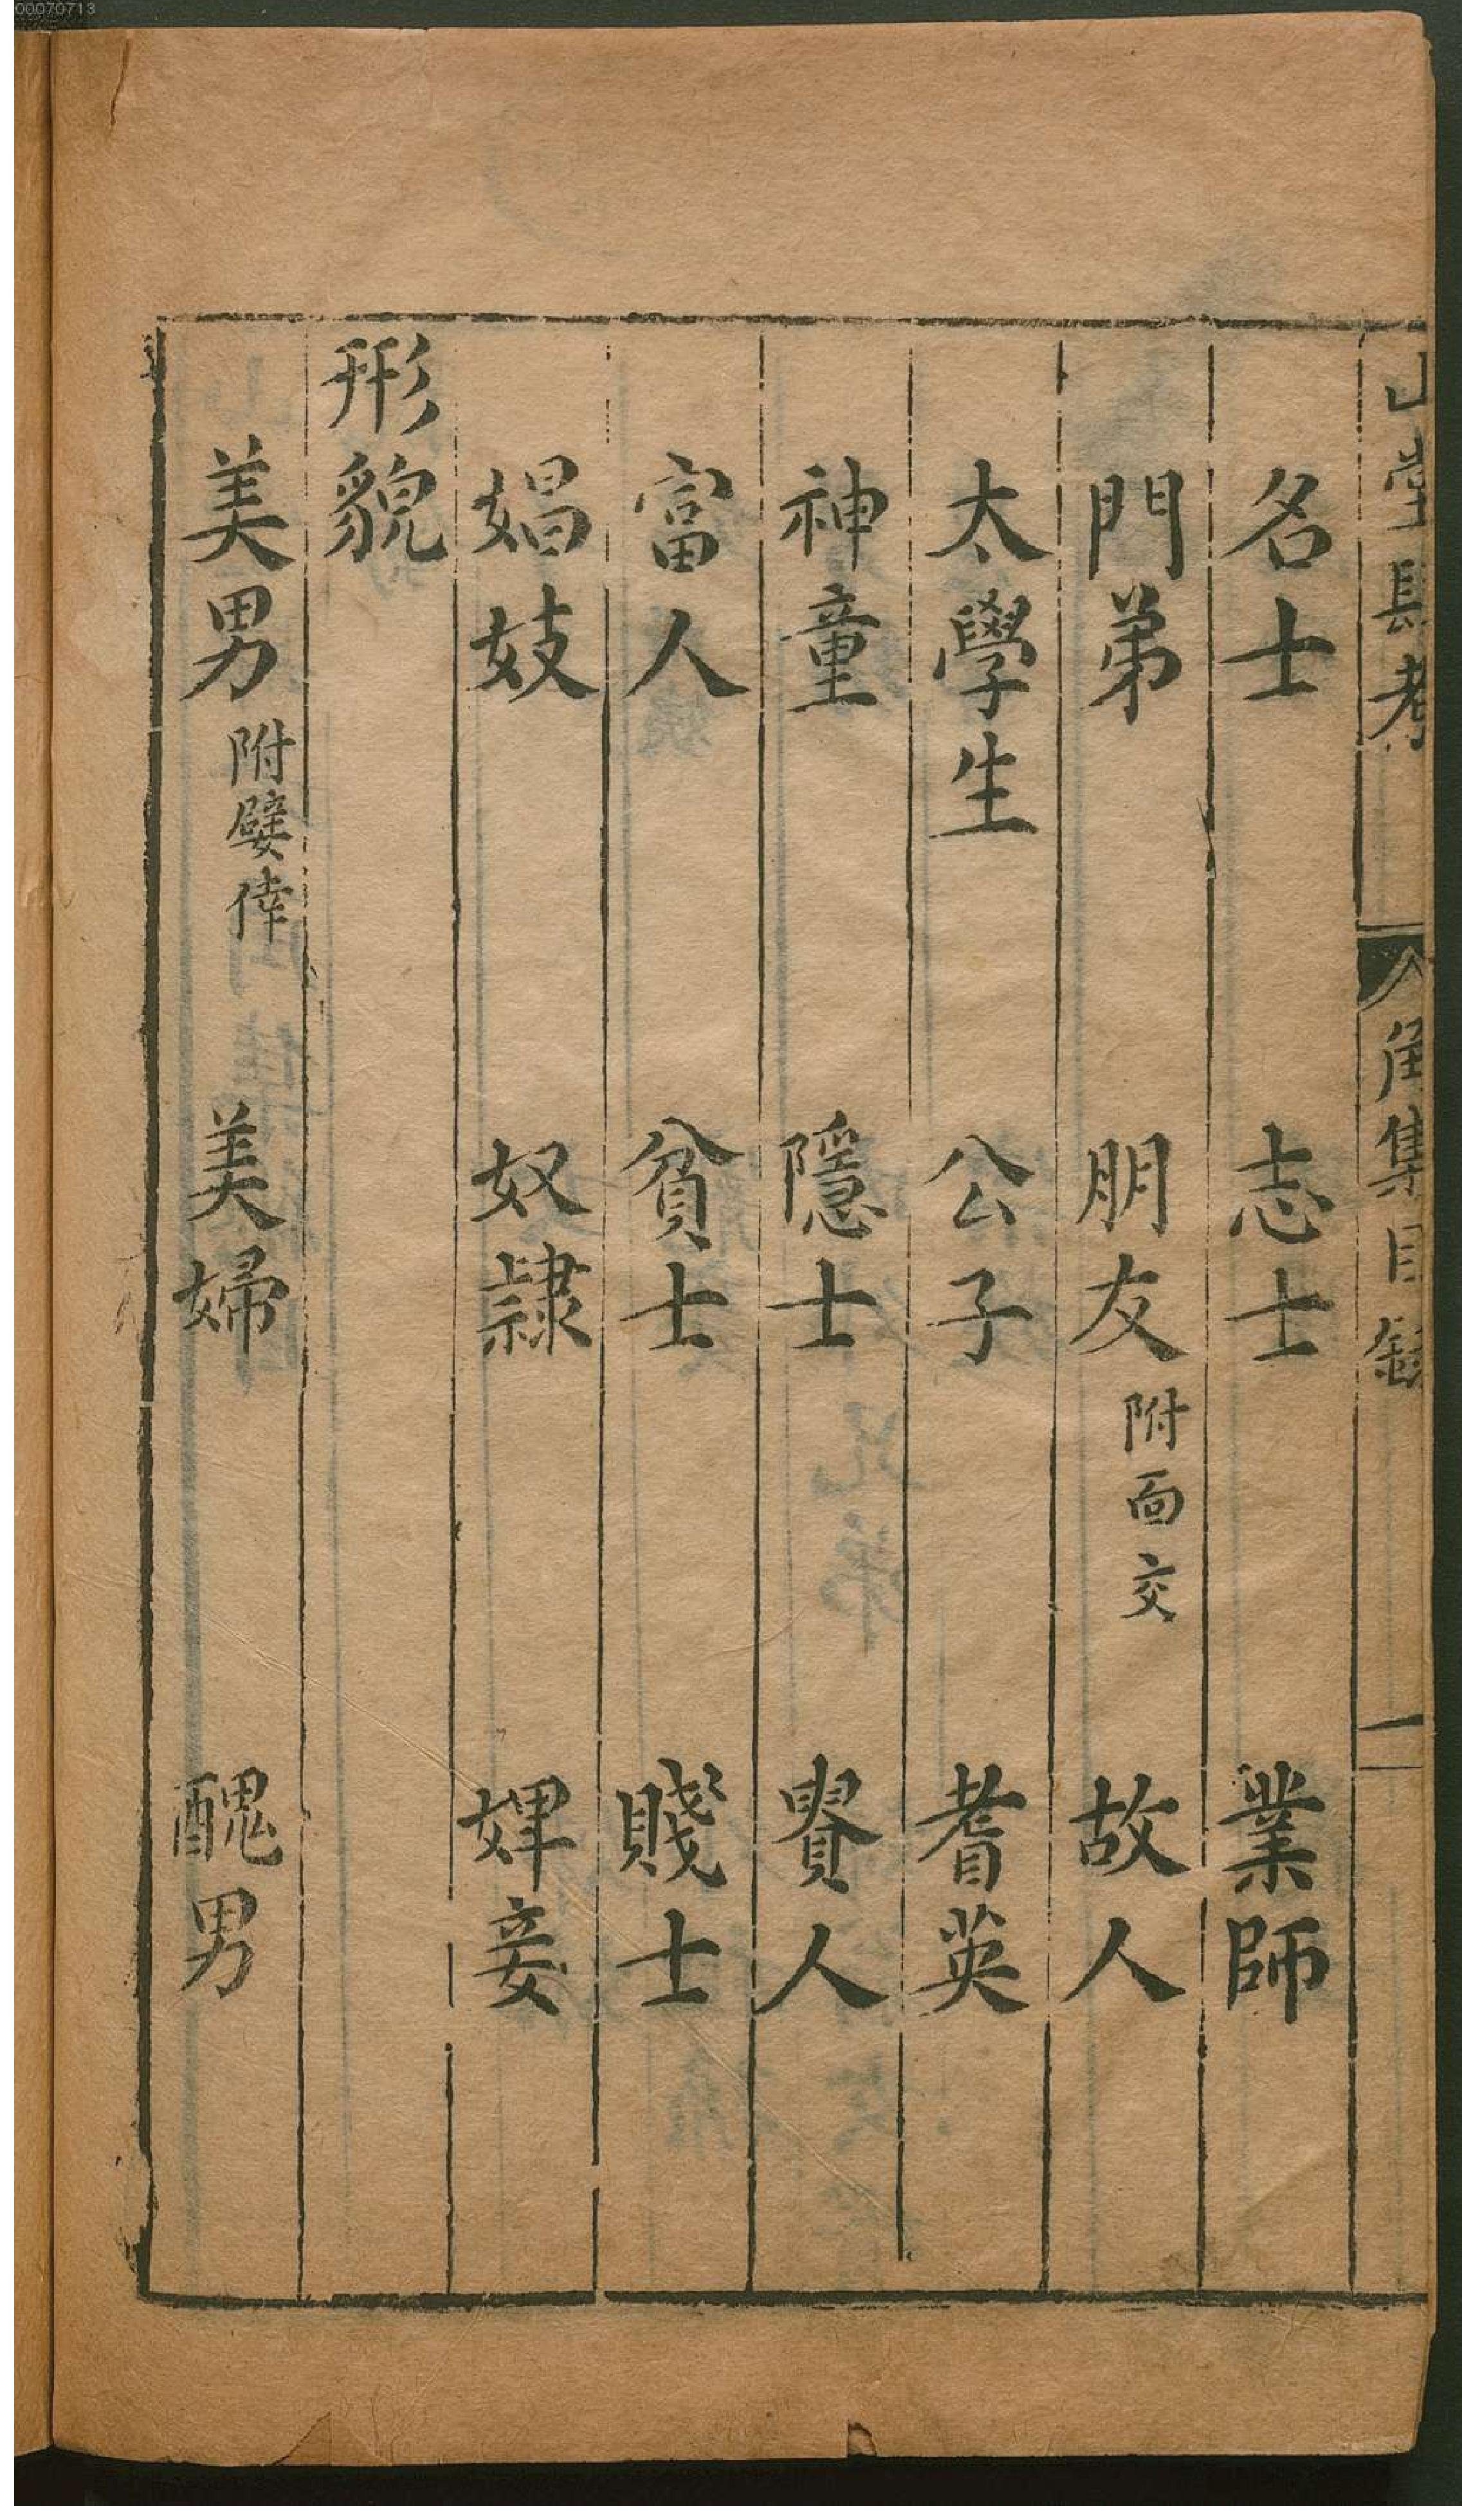 00070713
山堂肆考 角集目錄 一
名士 志士 業師
門弟 朋友 附面交 故人
太學生 公子 耆英
神童 隱士 賢人
富人 貧士 賤士
娼妓 奴隷 婢妾
形貌
美男 附嬖倖 美婦 醜男